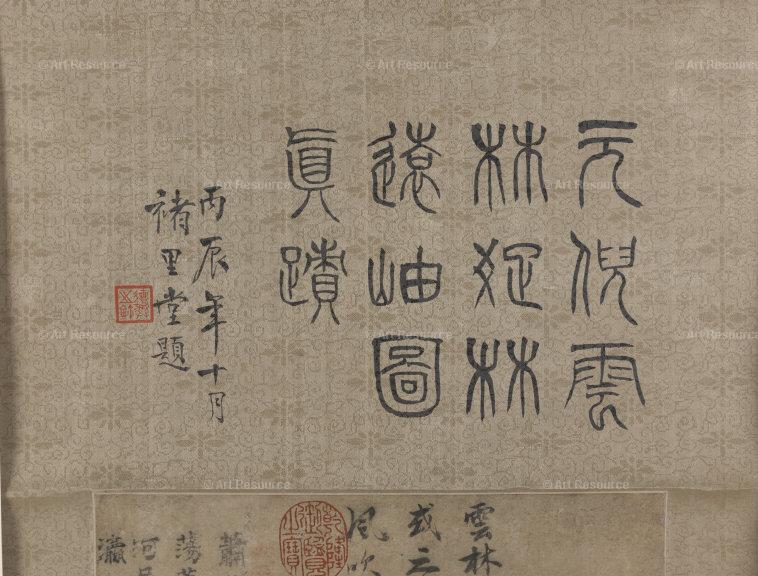 元倪雲
林疏林
遠岫圖
眞蹟
丙辰年十月
褚里堂題
雲林
或云
風吹
乾隆御覽之寶
蕭
蕩
河
瀟
© Art Resource
© Art Resource
© Art Resource
© Art Resource
© Art Resource
© Art Resource
© Art Resource
© Art Resource
© Art Resource
© Art Resource